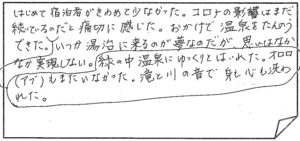 はじめて宿泊者がきわめて少なかった。コロナの影響はまだ
続いてるのだと痛切に感じた。おかげで温泉をたんのう
できた。いつか湯治に来るのが夢なのだが、思いはなか
なか実現しない。緑の中温泉にゆっくりとはいれた。オロロ
(アブ)もまだいなかった。滝と川の音で身も心も洗わ
れた。